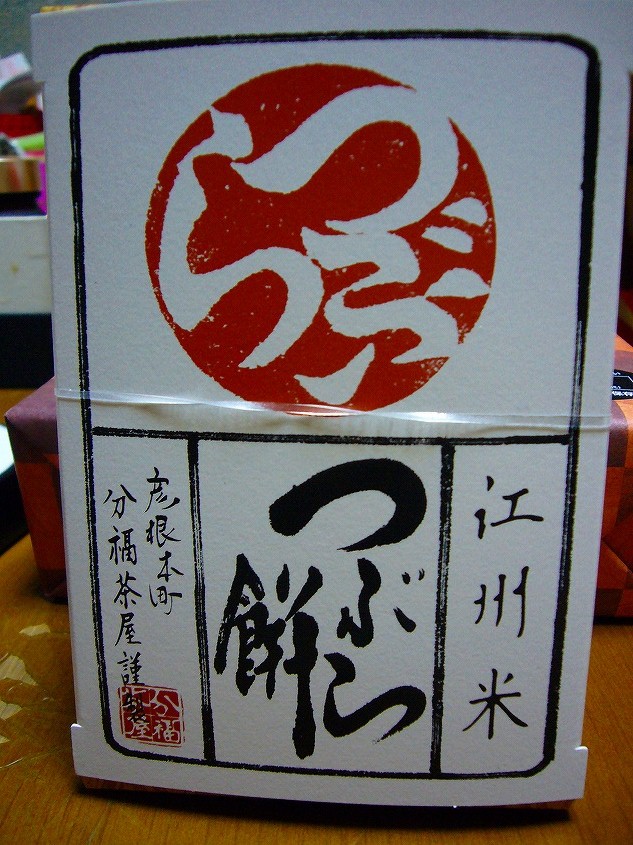 つぶら
江州米
つぶら
餅
彦根本町
分福茶屋謹製
分福
茶屋